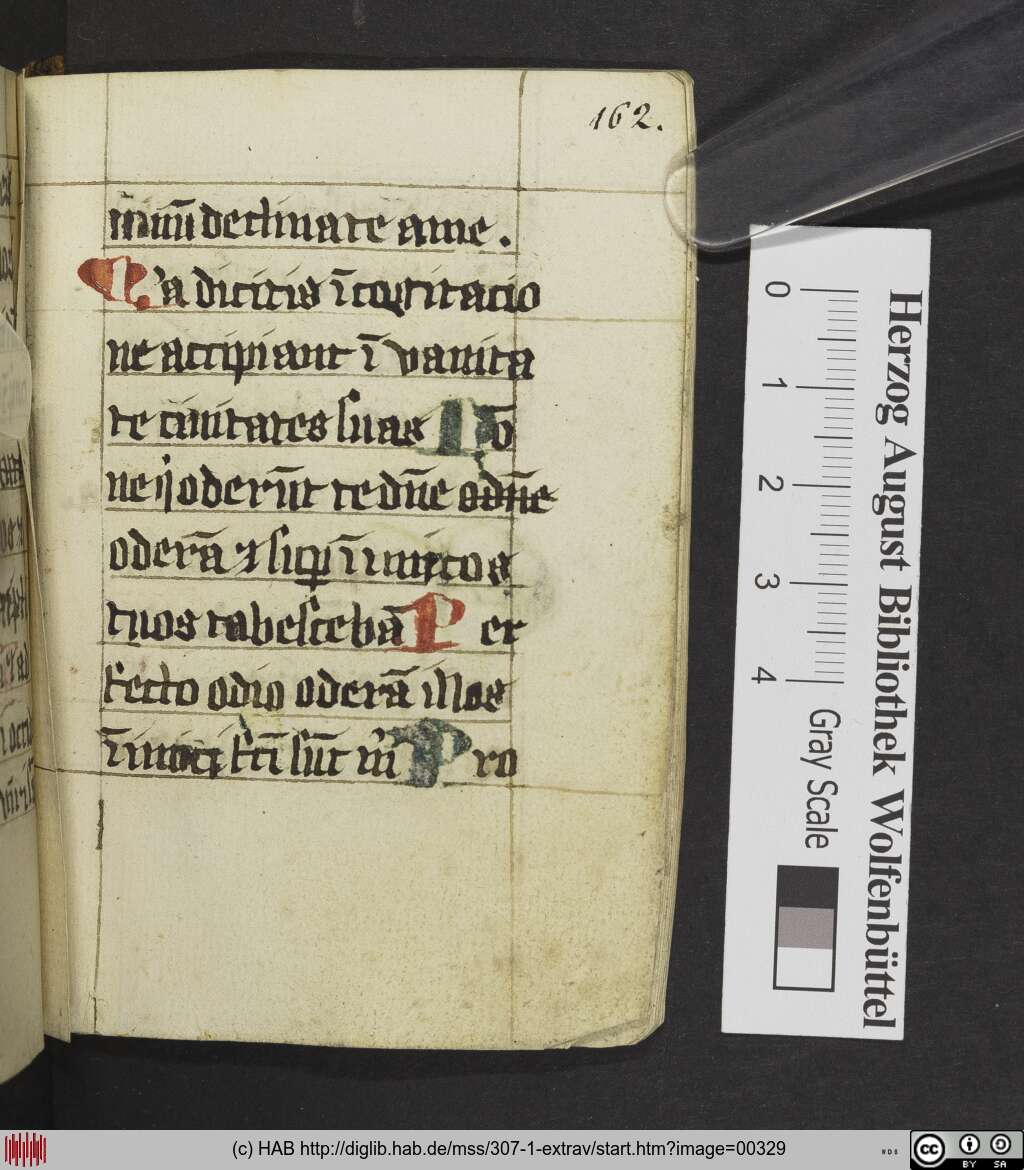 162.
minū declinate a me .
Q'a dicitis ī cogitacio
ne accipiant ī vanita
te ciuitates suas No
ne q̄ oderūt te dn̄e odn̄e
oderā ⁊ sup̄ īimicos
tuos tabescebā Per
fecto odio oderā illos
īimici fc̄i sūt m̄ Pro
0 1 2 3 4
Gray Scale
Herzog August Bibliothek Wolfenbüttel
(c) HAB http://diglib.hab.de/mss/307-1-extrav/start.htm?image=00329
cc BY SA